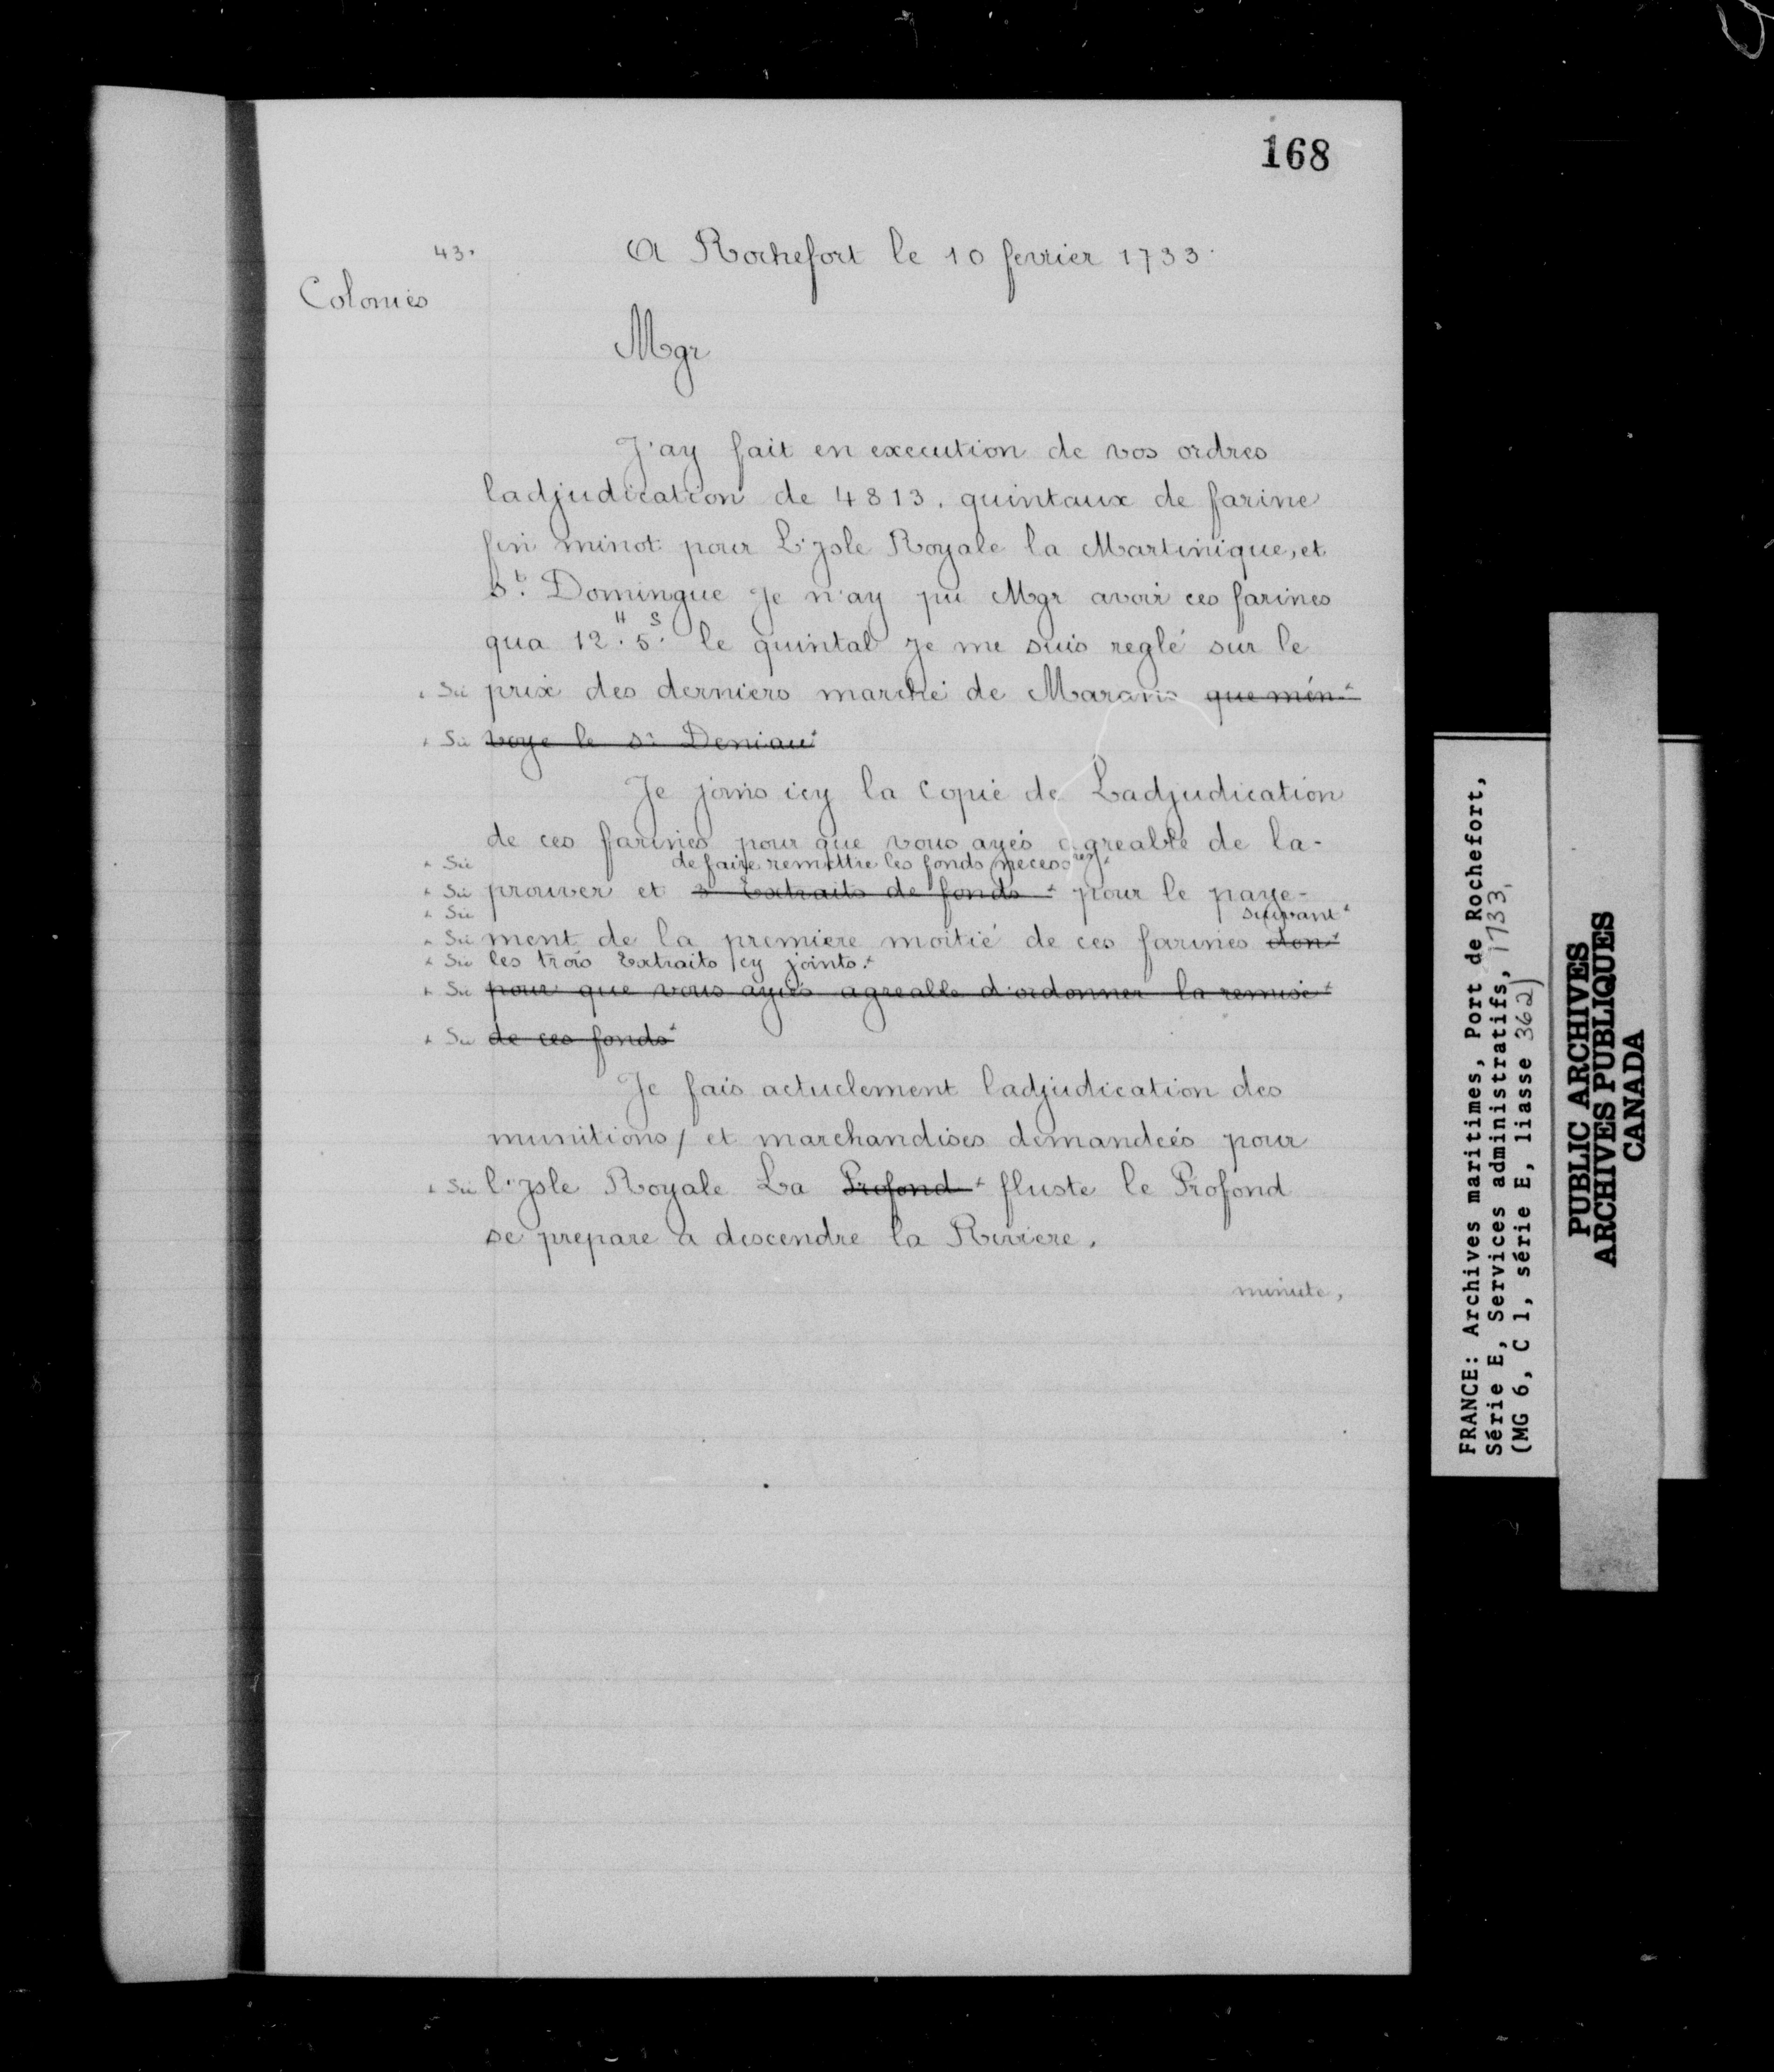 168
43.
A Rochefort le 10 fevrier 1733.
Colonies
Mgr
J'ay fait en execution de vos ordres
ladjudication de 4813. quintaux de farine
fin minot pour L'isle Royale la Martinique, et
St. Domingue Je n'ay pu Mgr avoir ces farines
qua 12.H 5.S le quintal je me suis reglé sur le
+ Sic prix des derniers marché de Marans que m'en+
+ Sic voye le Sr Deniau+
Je joins icy la Copie de Ladjudication
de ces farines pour que vous ayés agreable de la-
+ Sic de faire remettre les fonds necessres+
+ Sic prouver et 3 Extraits de fonds + pour le paye-
+ Sic suivant+
+ Sic ment de la premiere moitié de ces farines don+
+ Sic les trois Extraits icy joints.+
+ Sic pour que vous ayiés agreable d'ordonner la remise+
+ Sic de ces fonds+
Je fais actuelement ladjudication des
munitions / et marchandises demandeés pour
+ Sic l'isle Royale La Profond + fluste le Profond
se prepare a descendre la Riviere.
minute,
FRANCE: Archives maritimes, Port de Rochefort,
Série E, Services administratifs, 1733,
(MG 6, C 1, série E, liasse 362)
PUBLIC ARCHIVES
ARCHIVES PUBLIQUES
CANADA